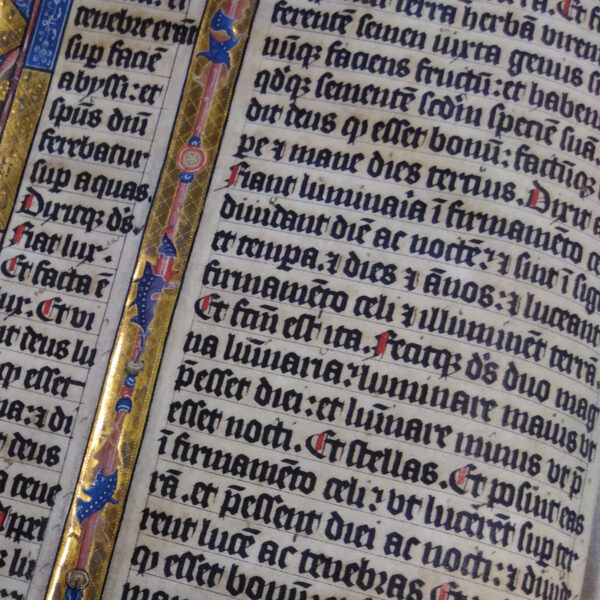 tenebre erāt
sup faciē
abyssi: et
spūs dnī
ferebatur
sup aquas.
Dixitqꝫ ds̄
Fiat lux.
Et facta ē
lux. Et vi
it deus lu
qꝫ esset
na: ⁊ di
it deus
a tene
Appel
terra herbā viren
ferente semen iuxta genus s
nūqꝫ faciens fructū: et haben
qd̄qꝫ sementē scdm speciē suā.
dit deus qꝫ esset bonū: factūqꝫ
pe ⁊ mane dies tertius. Dixit a
Fiant luminaia ī firmamēto ce
diuidant diē ac noctē: ⁊ sint ī sign
et tempa. ⁊ dies ⁊ ānos: ⁊ luceant
firmamēto celi ⁊ illuminēt terrā.
Et fctū est ita. Fecitqꝫ ds̄ duo mag
na lūnaria: luminare maius vt
p̄esset diei: et lūnare minus vt p̄
esset nocti. Et stellas. Et posuit eas
ī firmamēto celi: vt lucerēt sup ter
rā. et p̄essent diei ac nocti: ⁊ diui
rent lucē ac tenebras Et
qꝫ esset bonū
mane